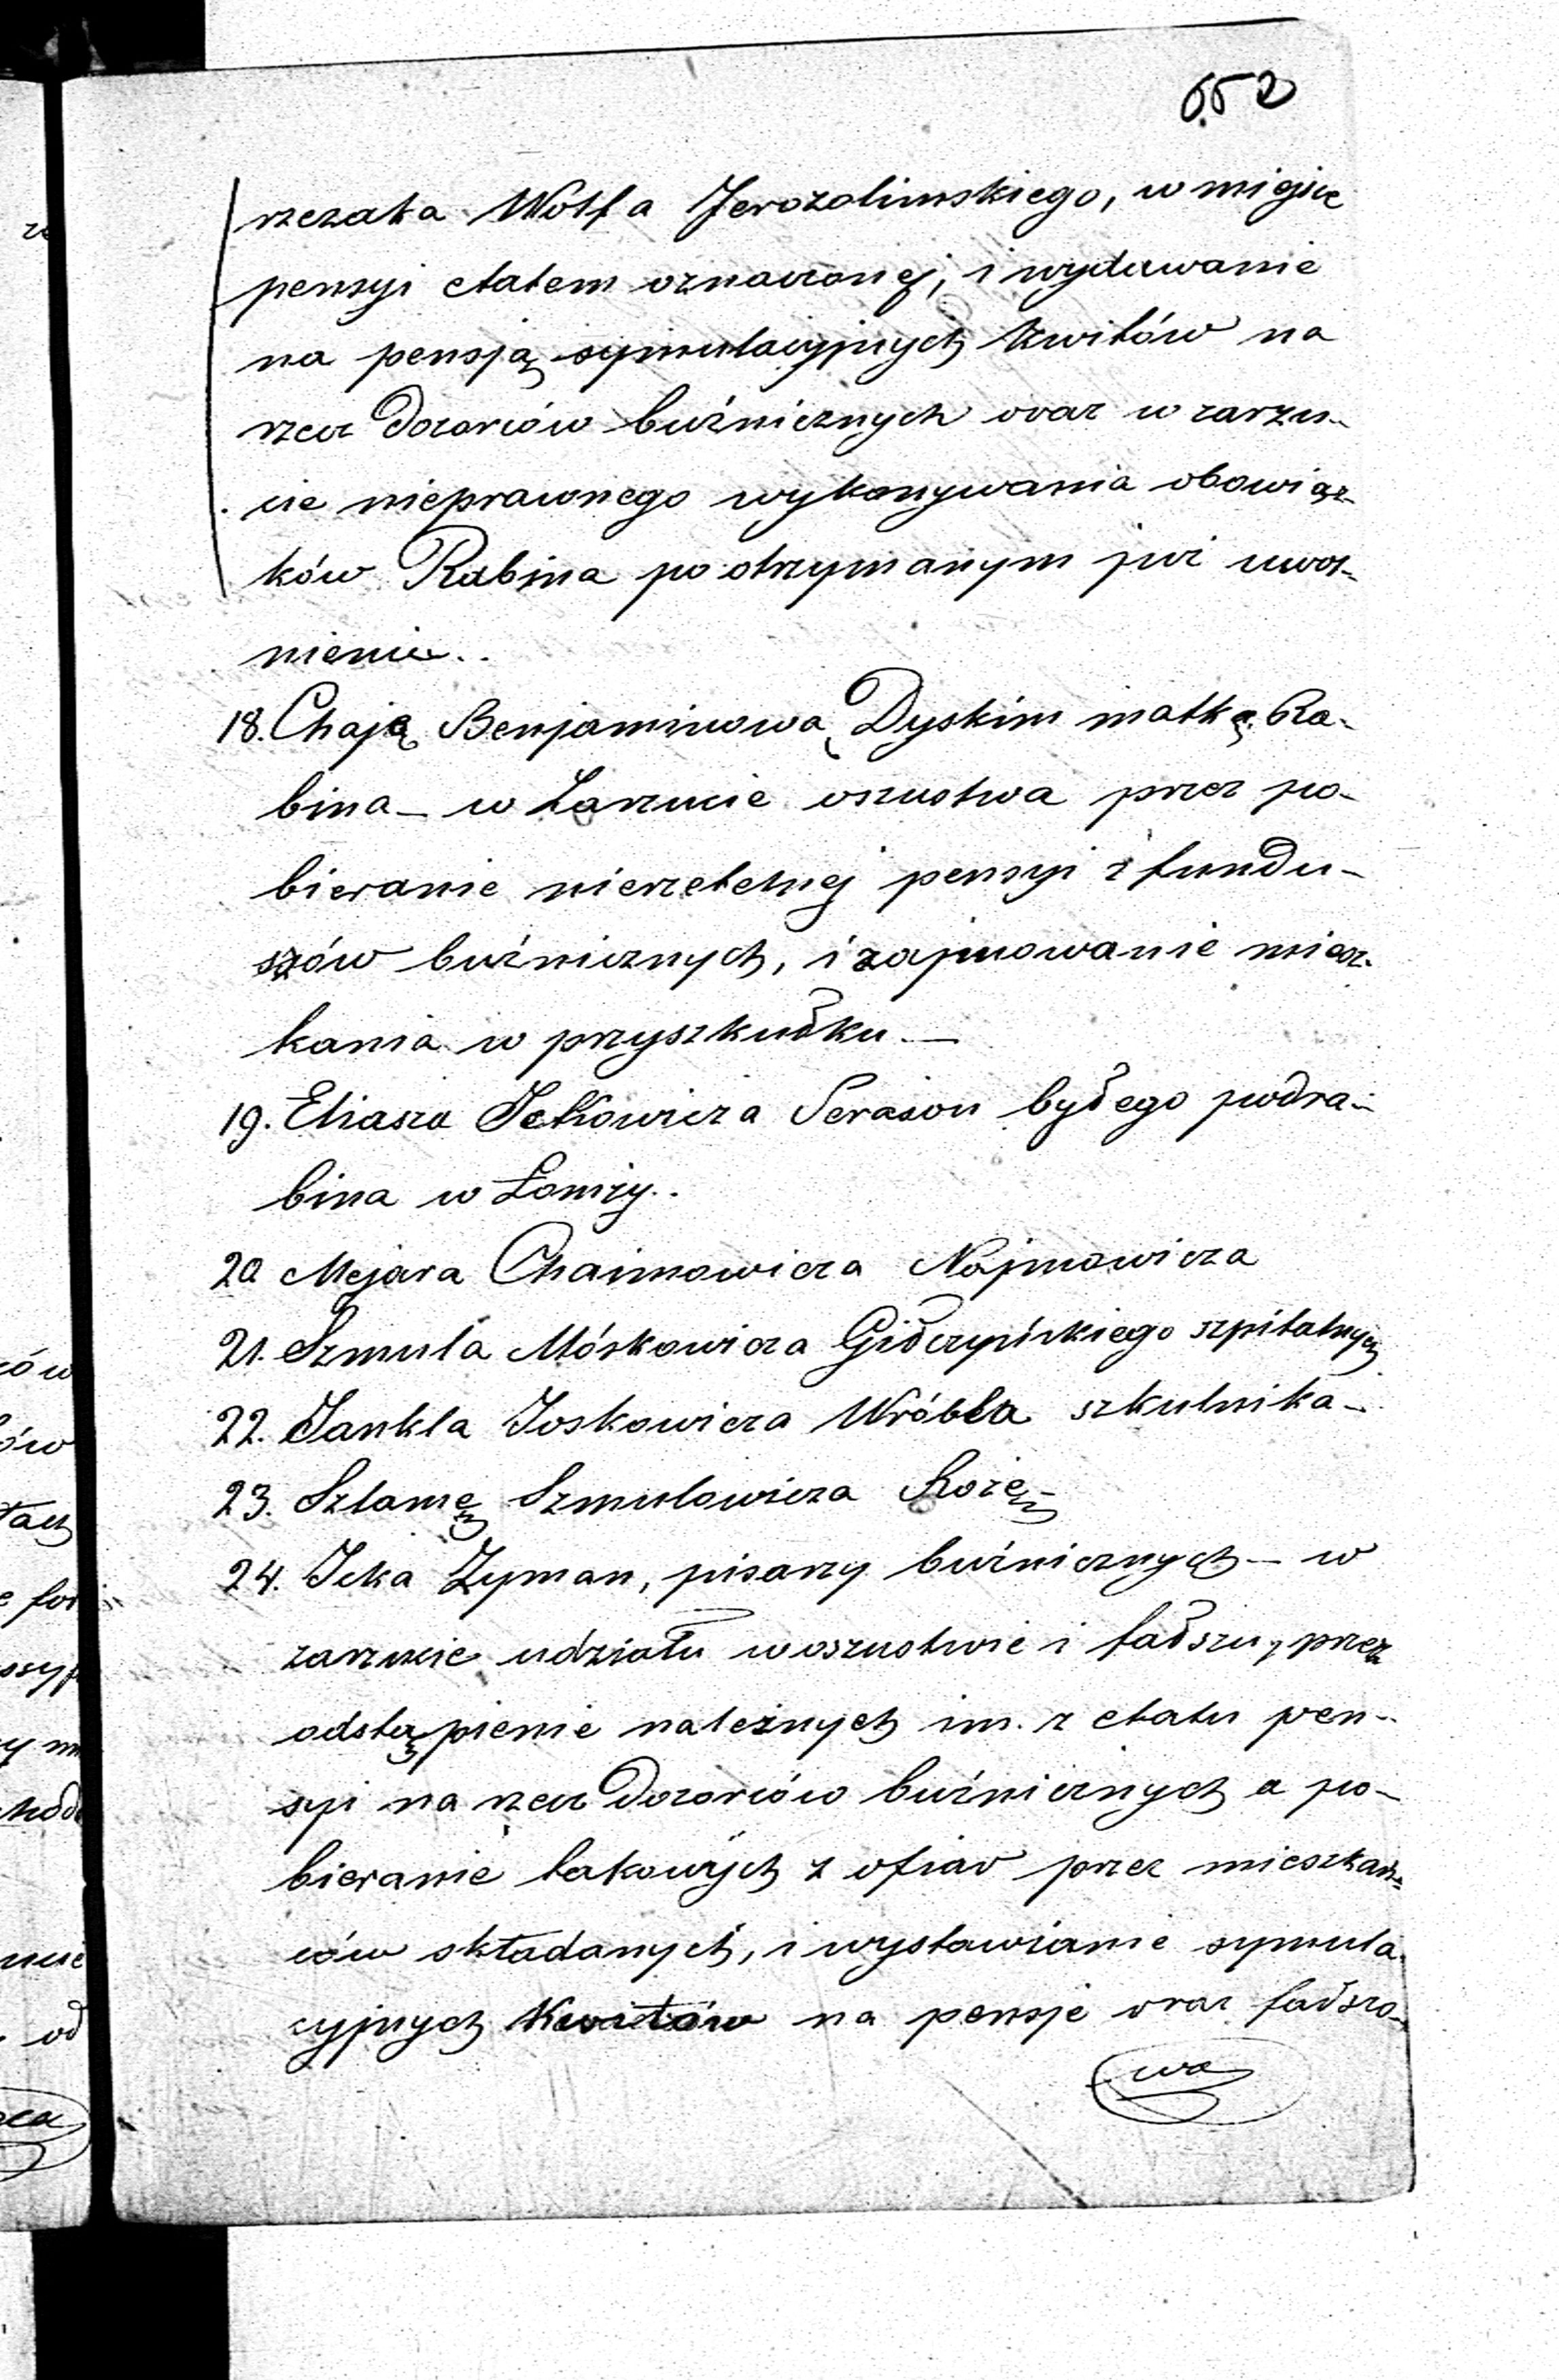 652
rzezaka Wolfa Jerozolimskiego, w miejsce
pensyi etatem oznaczonej, i wydawanie
na pensją symulacyjnych kwitów na
rzecz Dozorców buźnicznych oraz w zarzu-
cie nieprawnego wykonywania obowiąz-
ków Rabina po otrzymanym już uwol-
nieniu..
18. Chają Benjaminową Dyskim matkę Ra-
bina – w Zarzucie oszustwa przez po-
bieranie nierzetelnej pensyi z fundu-
szów buźnicznych, i zajmowanie miesz-
kania w przyszkułku. –
19. Eliasza Ickowicza Serason byłego podra-
bina w Łomży..
20 Mejara Chaimowicza Najmowicza
21. Szmula Móskowicza Giełczyńskiego szpitalnych
22. Jankla Joskowicza Wróbla szkulnika –
23. Szlamę Szmulowicza Rozę –
24. Icka Zyman, pisarzy buźnicznych – w
zarzucie udziału w oszustwie i fałszu, przez
odstąpienie należnych im z etatu pen-
syi na rzecz Dozorców buźnicznych a po-
bieranie takowych z ofiar przez mieszkań-
ców składanych, i wystawianie symula-
cyjnych Kwitów na pensje oraz fałszo-
wa